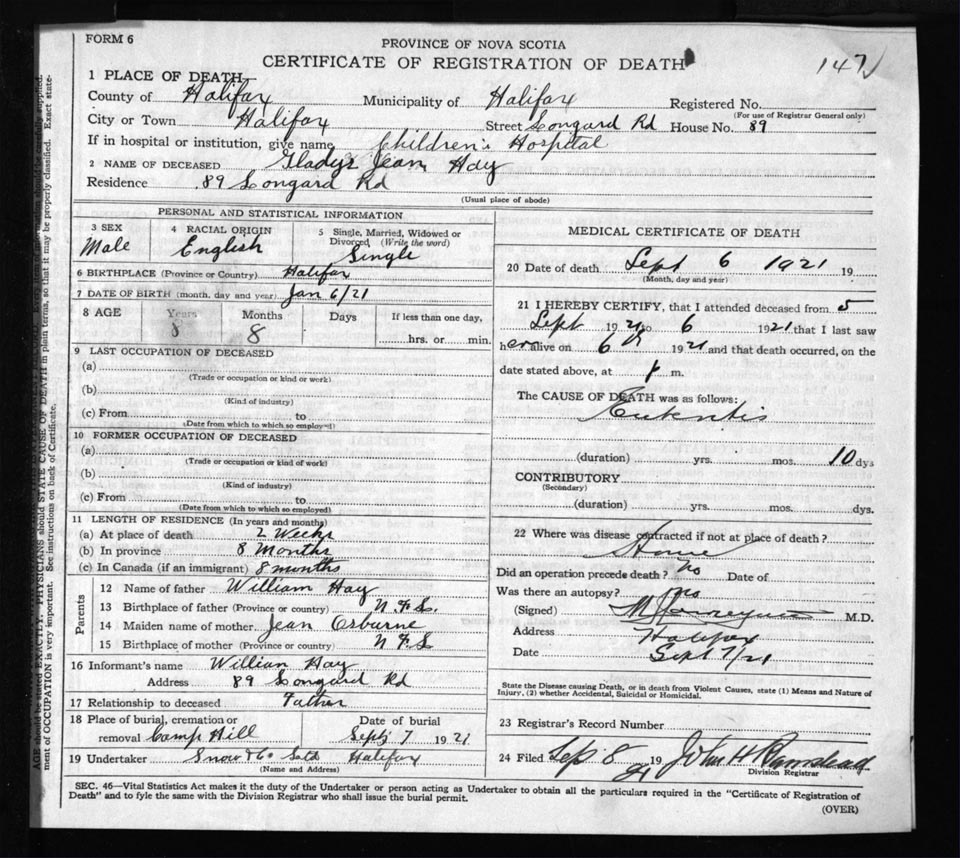 FORM 6
PROVINCE OF NOVA SCOTIA
CERTIFICATE OF REGISTRATION OF DEATH
147
1 PLACE OF DEATH
County of Halifax Municipality of Halifax Registered No.
(For use of Registrar General only)
City or Town Halifax Street Longard Rd House No. 89
If in hospital or institution, give name Children's Hospital
2 NAME OF DECEASED Gladys Jean Hay
Residence 89 Longard Rd
(Usual place of abode)
PERSONAL AND STATISTICAL INFORMATION
3 SEX 4 RACIAL ORIGIN 5 Single, Married, Widowed or Divorced (Write the word)
Male English Single
6 BIRTHPLACE (Province or Country) Halifax
7 DATE OF BIRTH (month, day and year) Jan 6/21
8 AGE Years Months Days If less than one day,
8 8 hrs. or min.
9 LAST OCCUPATION OF DECEASED
(a)
(Trade or occupation or kind or work)
(b)
(Kind of industry)
(c) From to
(Date from which to which so employed)
10 FORMER OCCUPATION OF DECEASED
(a)
(Trade or occupation or kind of work)
(b)
(Kind of industry)
(c) From to
(Date from which to which so employed)
11 LENGTH OF RESIDENCE (In years and months)
(a) At place of death 2 Weeks
(b) In province 8 Months
(c) In Canada (if an immigrant) 8 months
Parents
12 Name of father William Hay
13 Birthplace of father (Province or country) N.F.L.
14 Maiden name of mother Jean Osburne
15 Birthplace of mother (Province or country) N F L
16 Informant's name William Hay
Address 89 Longard Rd
17 Relationship to deceased Father
18 Place of burial, cremation or removal Camp Hill
Date of burial Sept 7 1921
19 Undertaker Snow & Co Ltd Halifax
(Name and Address)
MEDICAL CERTIFICATE OF DEATH
20 Date of death Sept 6 1921 19
(Month, day and year)
21 I HEREBY CERTIFY, that I attended deceased from 5
Sept 1921 to 6 1921 that I last saw
her alive on 6th 1921 and that death occurred, on the
date stated above, at m.
The CAUSE OF DEATH was as follows:
(duration) yrs. mos. 10 dys
CONTRIBUTORY
(Secondary)
(duration) yrs. mos. dys.
22 Where was disease contracted if not at place of death?
Home
Did an operation precede death? no Date of
Was there an autopsy? no
(Signed) M.D.
Address Halifax
Date Sept 7/21
State the Disease causing Death, or in death from Violent Causes, state (1) Means and Nature of
Injury, (2) whether Accidental, Suicidal or Homicidal.
23 Registrar's Record Number
24 Filed Sep 8 1921 John H
Division Registrar
SEC. 46—Vital Statistics Act makes it the duty of the Undertaker or person acting as Undertaker to obtain all the particulars required in the "Certificate of Registration of
Death" and to fyle the same with the Division Registrar who shall issue the burial permit.
(OVER)